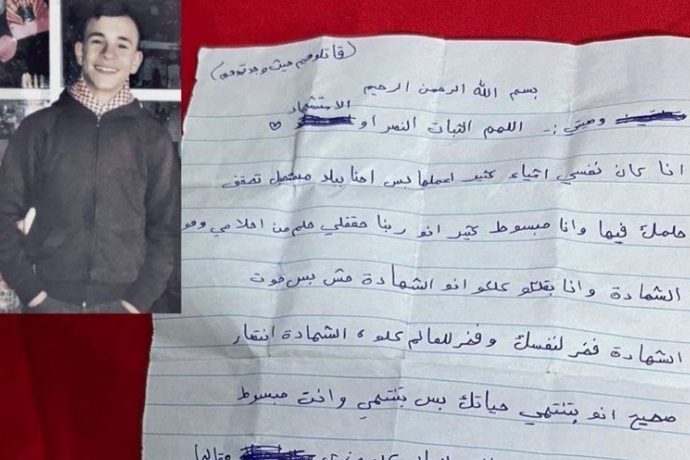 (قاتلوهم حيث وجدتموهم)
بسم الله الرحمن الرحيم
وصيتي :- اللهم الثبات النصر او الاستشهاد
انا كان نفسي اشياء كثير اعملها بس احنا ببلد مستحيل تحقق
حلمك فيها وانا مبسوط كثير انو ربنا حققلي حلم من احلامي وهو
الشهادة وانا بقلكو انو الشهادة مش بس موت
الشهادة فخر لنفسك وفخر للعالم كلو ، الشهادة انتصار
صحيح انو بتنتهي حياتك بس بتنتهي وانت مبسوط